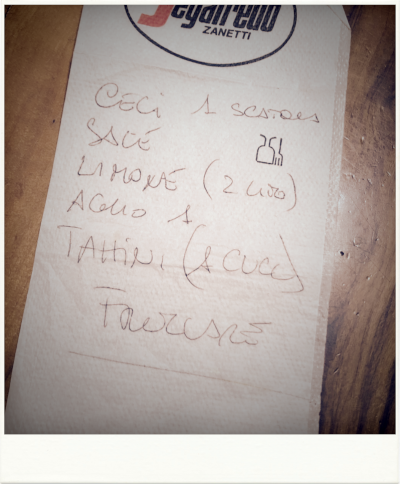 Segafredo
ZANETTI
CECI 1 SCATOLA
SALE
LIMONE (2
AGLIO 1
TAHINI (1 CUCC)